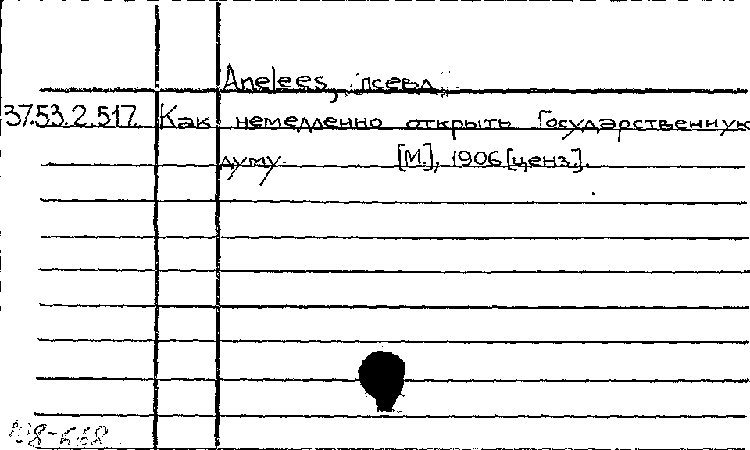 Anelees, псевд.
37.53.2.517. Как немедленно открыть Государственную
думу. [М.], 1906 [ценз.].